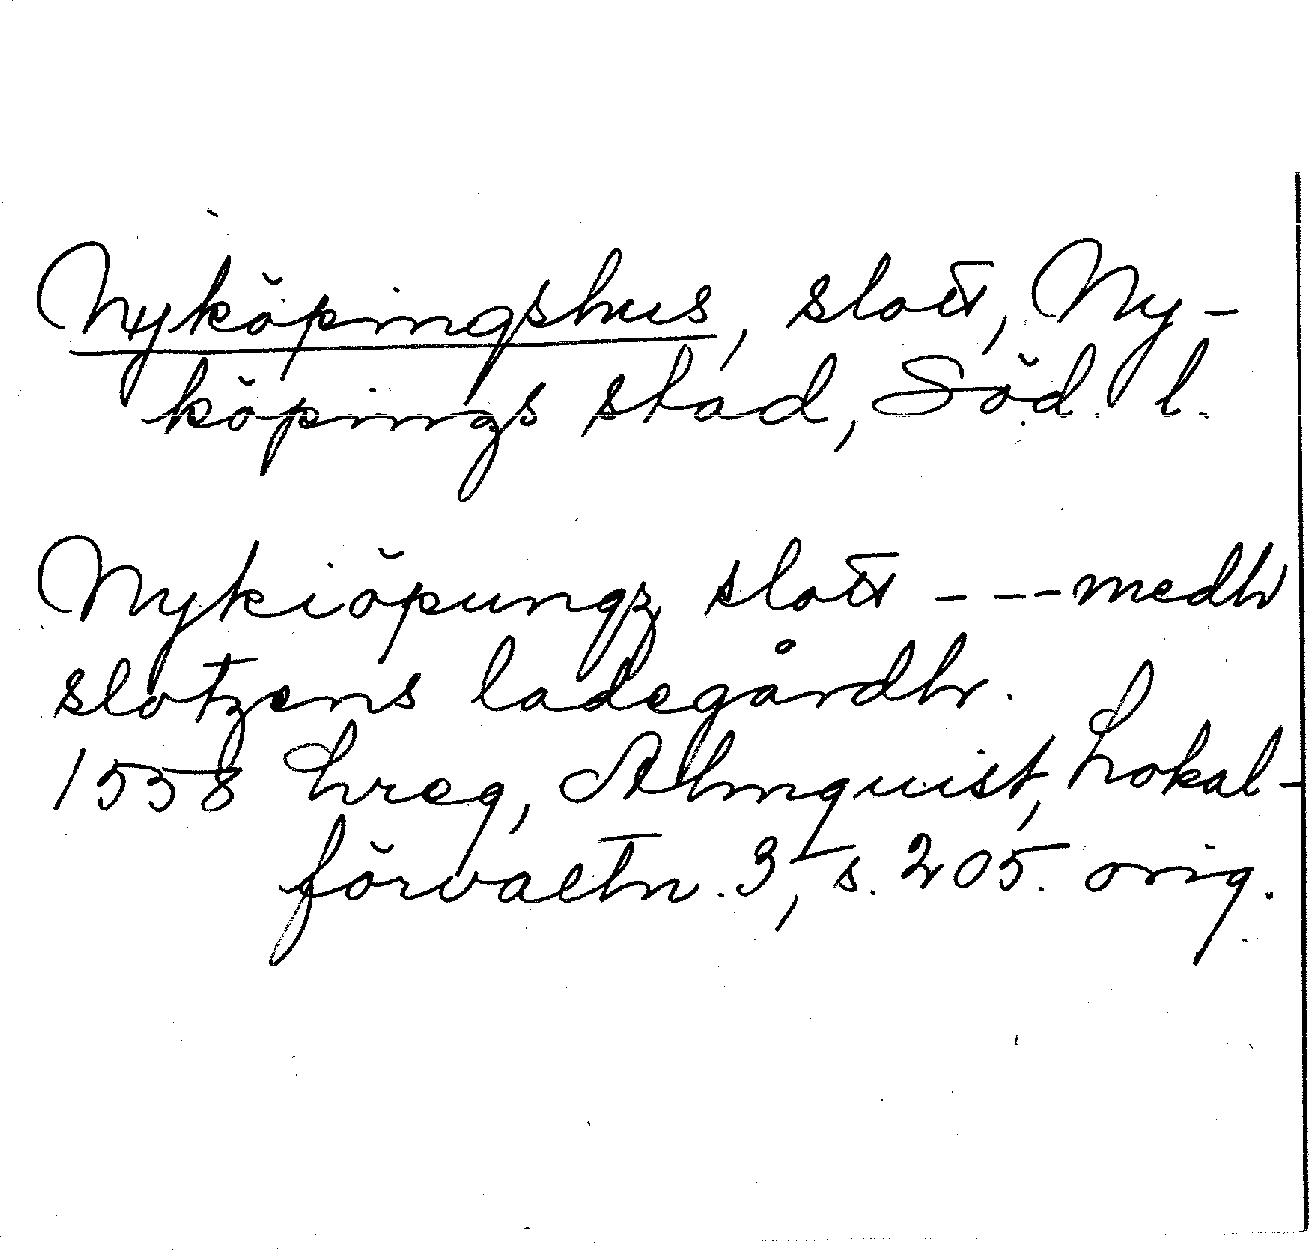 Nyköpingshus, slott, Ny-
köpings stad, Söd. l.
Nykiöpungz slott --- medh
slotzens ladegårdh.
1558 Lreg, Almquist, Lokal-
förvaltn. 3, s. 205. orig.